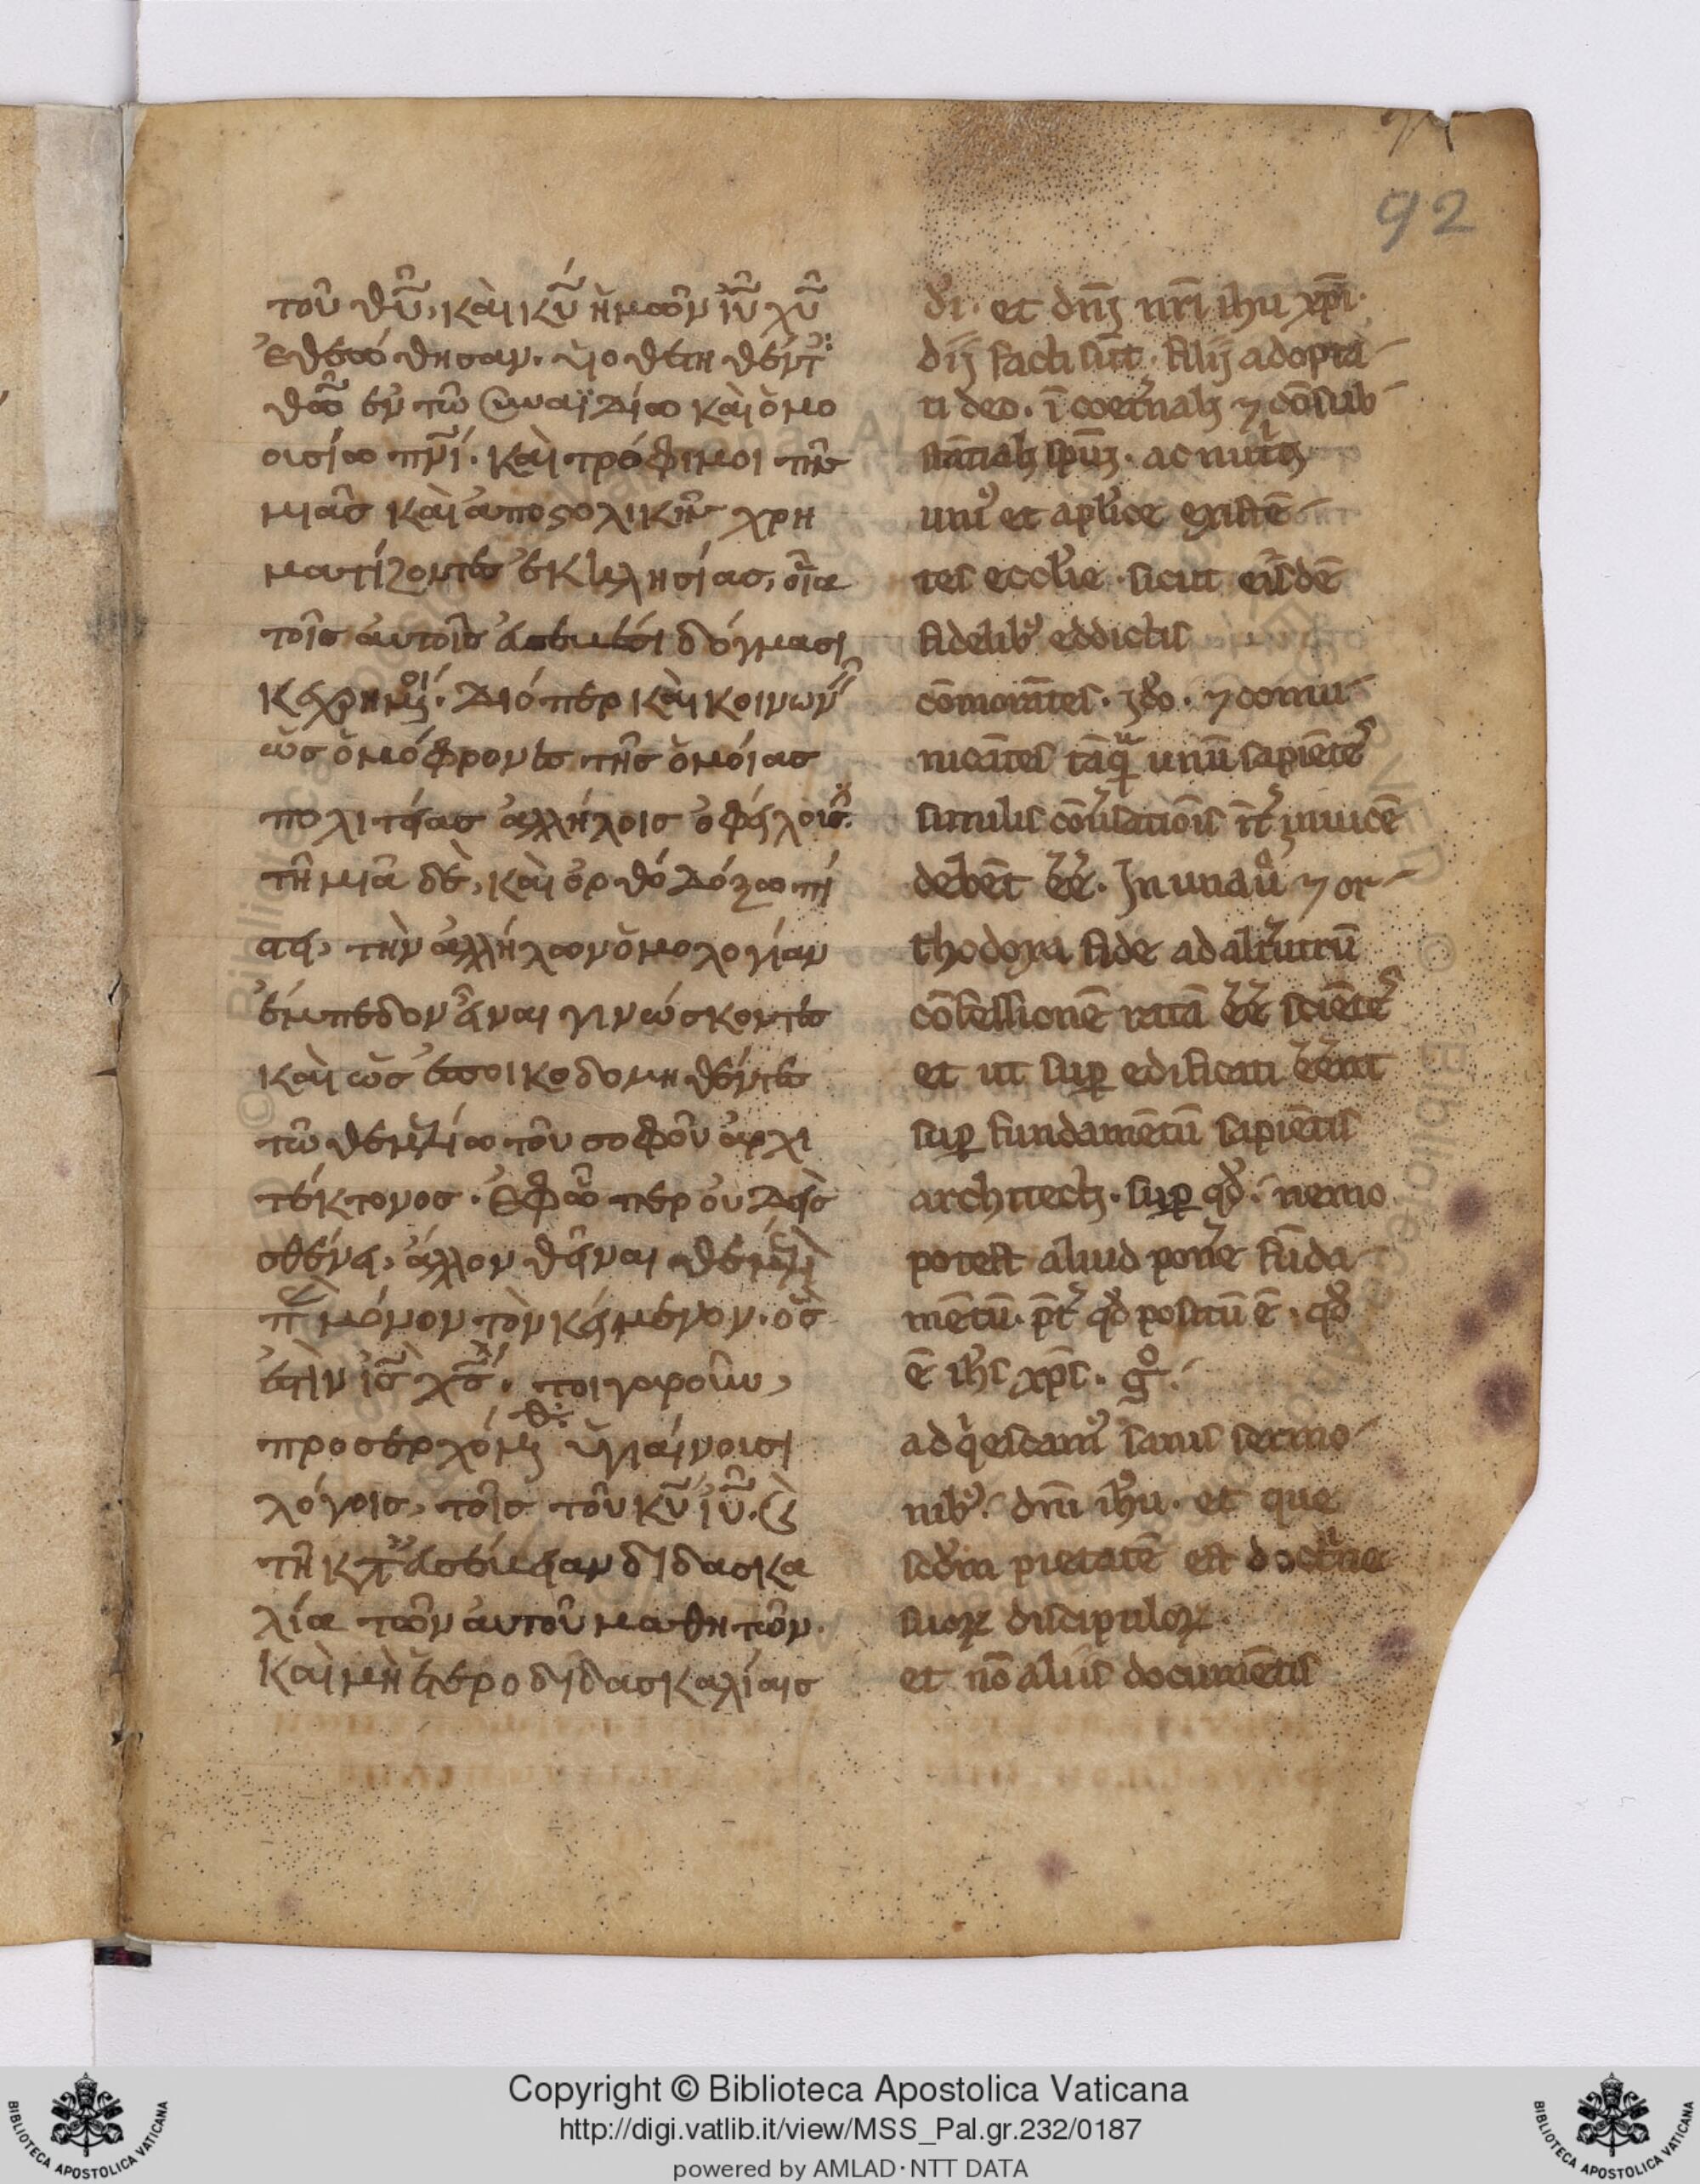 92
τοῦ θῦ, καὶ κῦ ἡμῶν ἰῦ χῦ
ἐθεώθησαν. υἱοθετηθέντ
θῶ ἐν τῶ συναϊδίω καὶ ὁμο
ουσίω πνι. καὶ τρόφιμοι τῆς
μιᾶς καὶ ἀποστολικῆς χρη
ματίζοντες ἐκκλησίας, οἷα
τοῖς αὐτοῖς εὐσεβέσι δόγμασι
κεχρημ. διόπερ καὶ κοινων
ὡς ὁμόφρονες τῆς ὁμοίας
πολιτείας ἀλλήλοις
τῆ μιᾶ δὲ, καὶ ὀρθοδόξω πί
στει, τὴν ἀλλήλων ὁμολογίαν
ἔμπεδον εἶναι γινώσκοντες
καὶ ὡς ἐποικοδομηθέντες
τῶ θεμελίω τοῦ σοφοῦ ἀρχι
τέκτονος. ἐφ ὧ περ οὐδεὶς
σθένει, ἄλλον θεῖναι θεμέλι
π μόνον τὸν κείμενον. ὅς
ἐστὶν ἰς χς. τοιγαροῦν,
προσερχόμ ὑγιαίνουσι
λόγοις, τοῖς τοῦ κῦ ἰῦ. καὶ
τῆ κτ εὐσέβειαν διδασκα
λία τῶν αὐτοῦ μαθητῶν.
καὶ μὴ ἑτεροδιδασκαλίαις
di. et dnj nri ihu xpi.
dij facti sut. filij adopta
ti deo. i coetnalj ⁊ cosub
statialj spuj. ac nutitj
uni et aplice existe
tes ecclie. sicut eisde
fidelib eddictis
comorates. ido. ⁊ comu
nicates taq unu sapietes
similis couersatiois it inuice
debet ee. In una u ⁊ or
thodoxa fide ad altutru
cofessione rata ee sciētes
et ut sup edificati eent
sup fundametu sapietis
architectj. sup qd. nemo
potest aliud pone fuda
metu. pt qd positu e. qd
e ihs xps. go.
adqescam sanis sermo
nib. dni ihu. et que
scdm pietate est doctne
suoꝝ discipuloꝝ.
et no aliis documetis
Copyright © Biblioteca Apostolica Vaticana
http://digi.vatlib.it/view/MSS_Pal.gr.232/0187
powered by AMLAD·NTT DATA